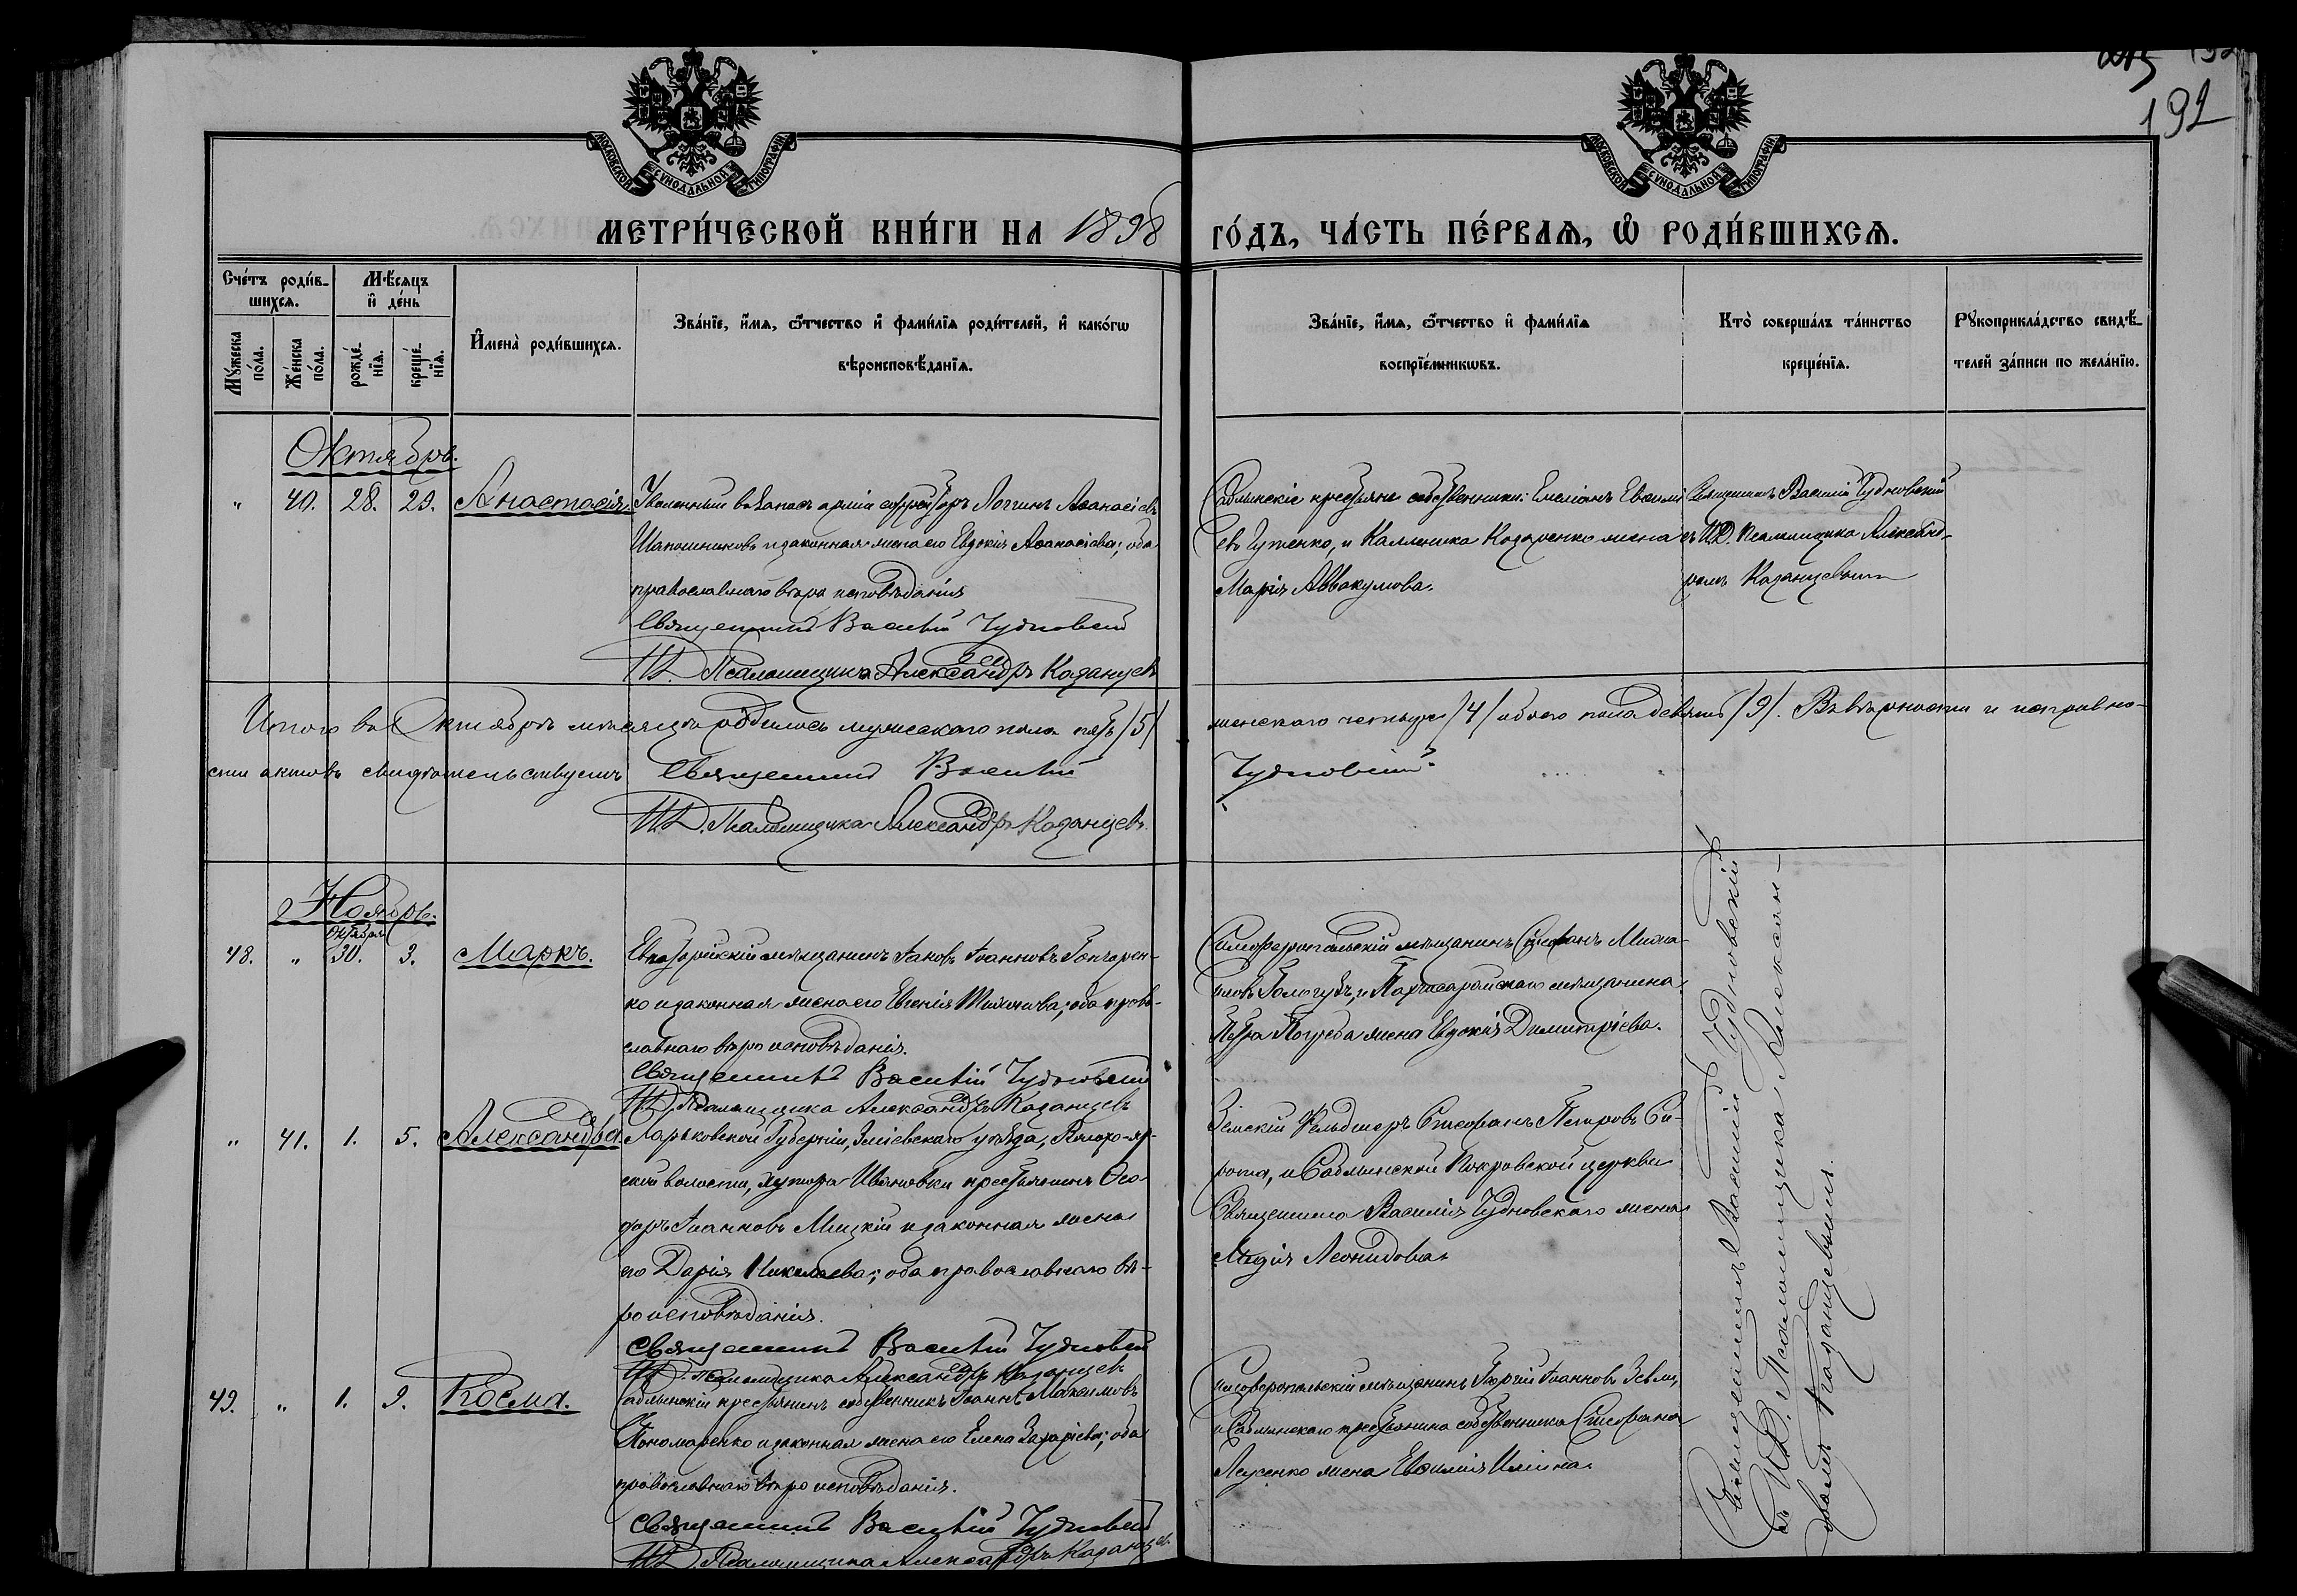 192
МОСКОВСКОЙ СУНОДАЛЬНОЙ ТИПОГРАФІИ
МОСКОВСКОЙ СУНОДАЛЬНОЙ ТИПОГРАФІИ
МЕТРИ́ЧЕСКОЙ КНИ́ГИ НА 1898 ГО́ДЪ, ЧА́СТЬ ПЕ́РВАЯ, Ѡ РОДИ́ВШИХСЯ.
Сче́тъ роди́в-
шихся.
Мѣ́сяцъ
и де́нь
Мꙋ́жеска
по́ла.
Же́нска
по́ла.
рожде́-
нїя.
креще́-
нїя.
Имена̀ роди́вшихся.
Зва́нїе, и́мя, ѻ́тчество и фами́лїя роди́телей, и како́гѡ
вѣроисповѣ́данїя.
Зва́нїе, и́мя, ѻ́тчество и фами́лїя
воспрїе́мникѡвъ.
Кто̀ соверша́лъ та́инство
креще́нїя.
Рꙋкоприкла́дство свидѣ́-
телей за́писи по жела́нїю.
Октябрь.
" 40. 28. 29. Анастасія.
Уволенный въ запасъ арміи ефрейторъ Логгинъ Аѳанасіевъ
Шапошниковъ и законная жена его Евдокія Аѳанасіева; оба
православнаго вѣроисповѣданія
Священникъ Василій Чудновскій
И.Д. Псаломщика Александръ Казанцевъ
Саблынскіе крестьяне собственники: Емеліанъ Евѳимі
евъ Гутенко, и Каллиника Козаренко жена
Марія Аввакумова.
Священникъ Василій Чудновскій
съ И.Д. Псаломщика Александ-
ромъ Казанцевымъ
Итого въ Октябрѣ мѣсяцѣ родилось мужескаго пола пять /5/ женскаго четыре /4/ обоего пола девять /9/. Въ вѣрности и исправно-
сти актовъ свидѣтельствуемъ Священникъ Василій Чудновскій
И.Д. Псаломщика Александръ Казанцевъ.
Ноябрь.
Октября
48. " 30. 3. Маркъ.
Евпаторійскій мѣщанинъ Іаковъ Іоанновъ Гончарен-
ко и законная жена его Евгенія; оба право-
славнаго вѣроисповѣданія.
Священникъ Василій Чудновскій
И.Д. Псаломщика Александръ Казанцевъ
Симферопольскій мѣщанинъ Стефанъ Миха-
иловъ, и мѣщанина
Петра жена Евдокія Димитріева.
" 41. 1. 5. Александра.
Харьковской Губерніи, Зміевскаго уѣзда,
ской волости, хутора Ивановки крестьянинъ Ѳео-
доръ Іоанновъ Мицкій и законная жена
его Дарія Николаева; оба православнаго вѣ-
роисповѣданія.
Священникъ Василій Чудновскій
И.Д. Псаломщика Александръ Казанцевъ
Земскій Фельдшеръ Стефанъ Петровъ Си-
рота, и Саблынской Покровской церкви
Священника Василія Чудновскаго жена
Лидія Леонидова.
49. " 1. 9. Косма.
Саблынскій крестьянинъ собственникъ Іоаннъ Максимовъ
Пономаренко и законная жена его Елена Захаріева; оба
православнаго вѣроисповѣданія.
Священникъ Василій Чудновскій
И.Д. Псаломщика Александръ Казанцевъ
Симферопольскій мѣщанинъ Георгій Іоанновъ
и Саблынскаго крестьянина собственника Стефана
жена Евѳимія Ильина.
Священникъ Василій Чудновскій
съ И.Д. Псаломщика Александ-
ромъ Казанцевымъ.